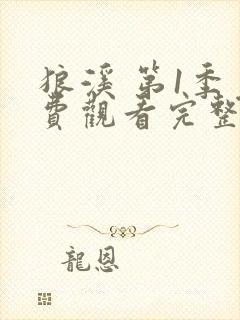 狼溪 第1季
費觀看完整
龍恩